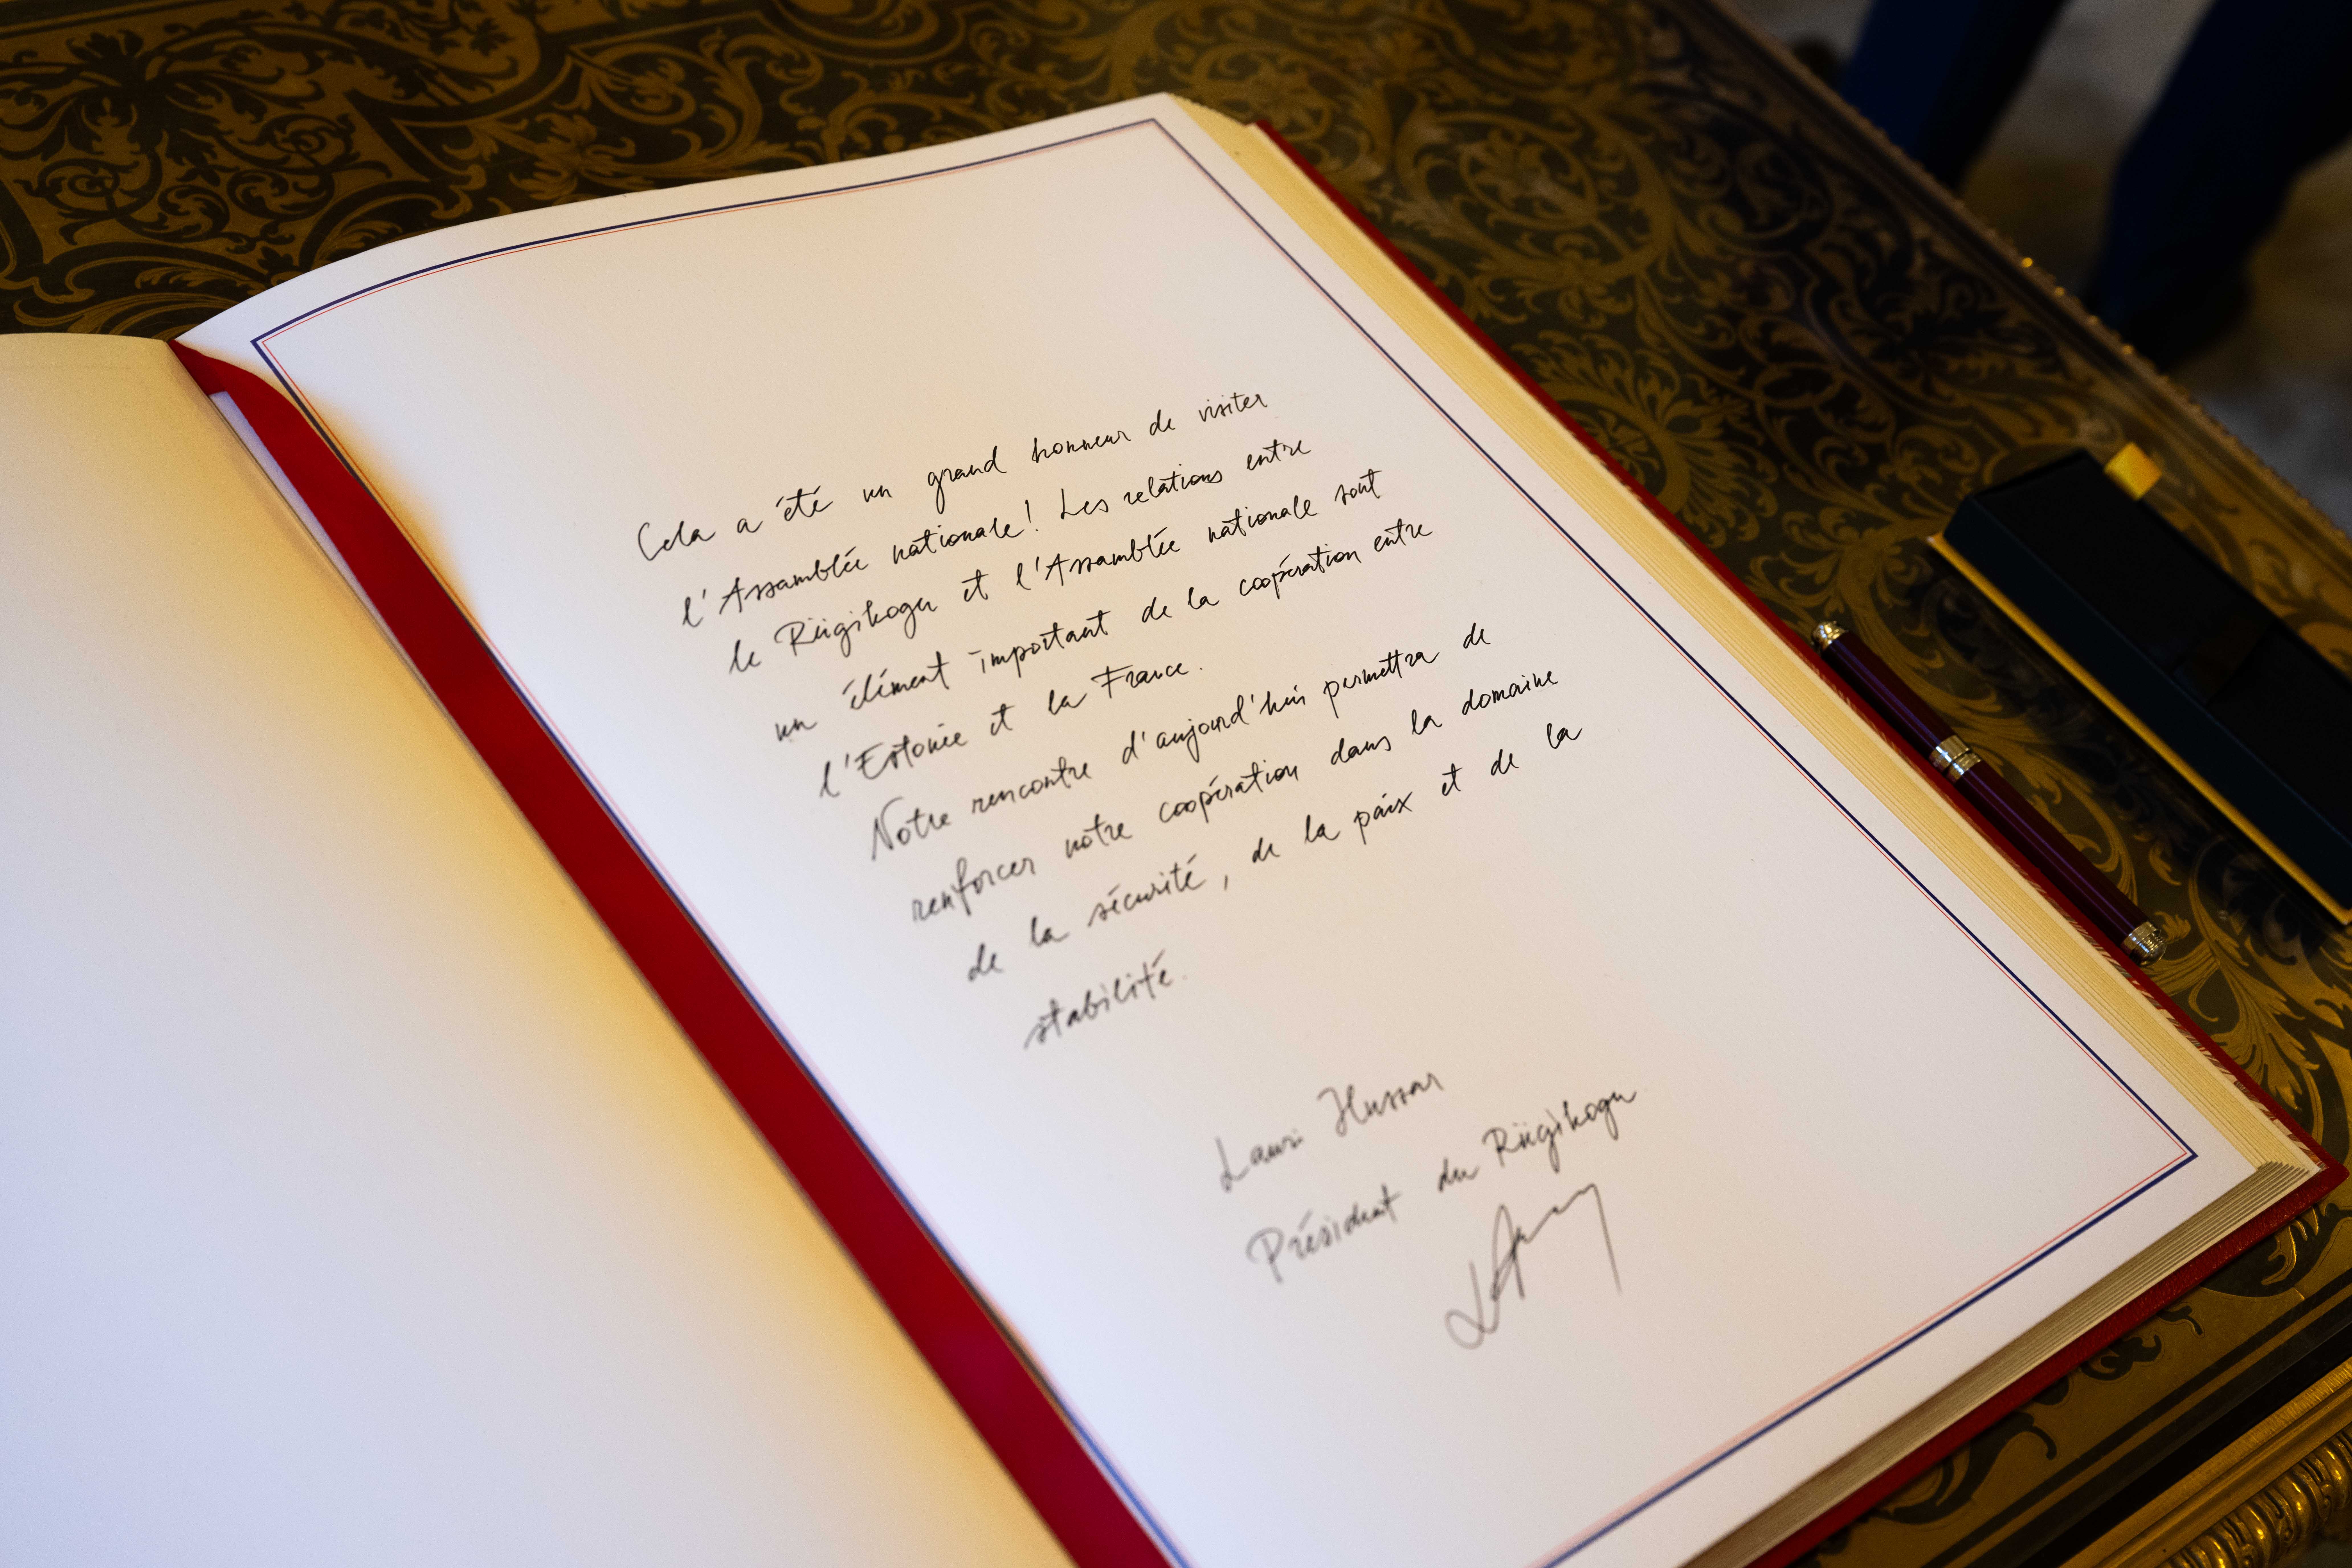 Cela a été un grand honneur de visiter
l'Assamblée nationale! Les relations entre
le Riigikogu et l'Assamblée nationale sont
un élément important de la coopération entre
l'Estonie et la France.
Notre rencontre d'aujourd'hui permettra de
renforcer notre coopération dans la domaine
de la sécurité, de la paix et de la
stabilité.
Lauri Hussar
Président du Riigikogu